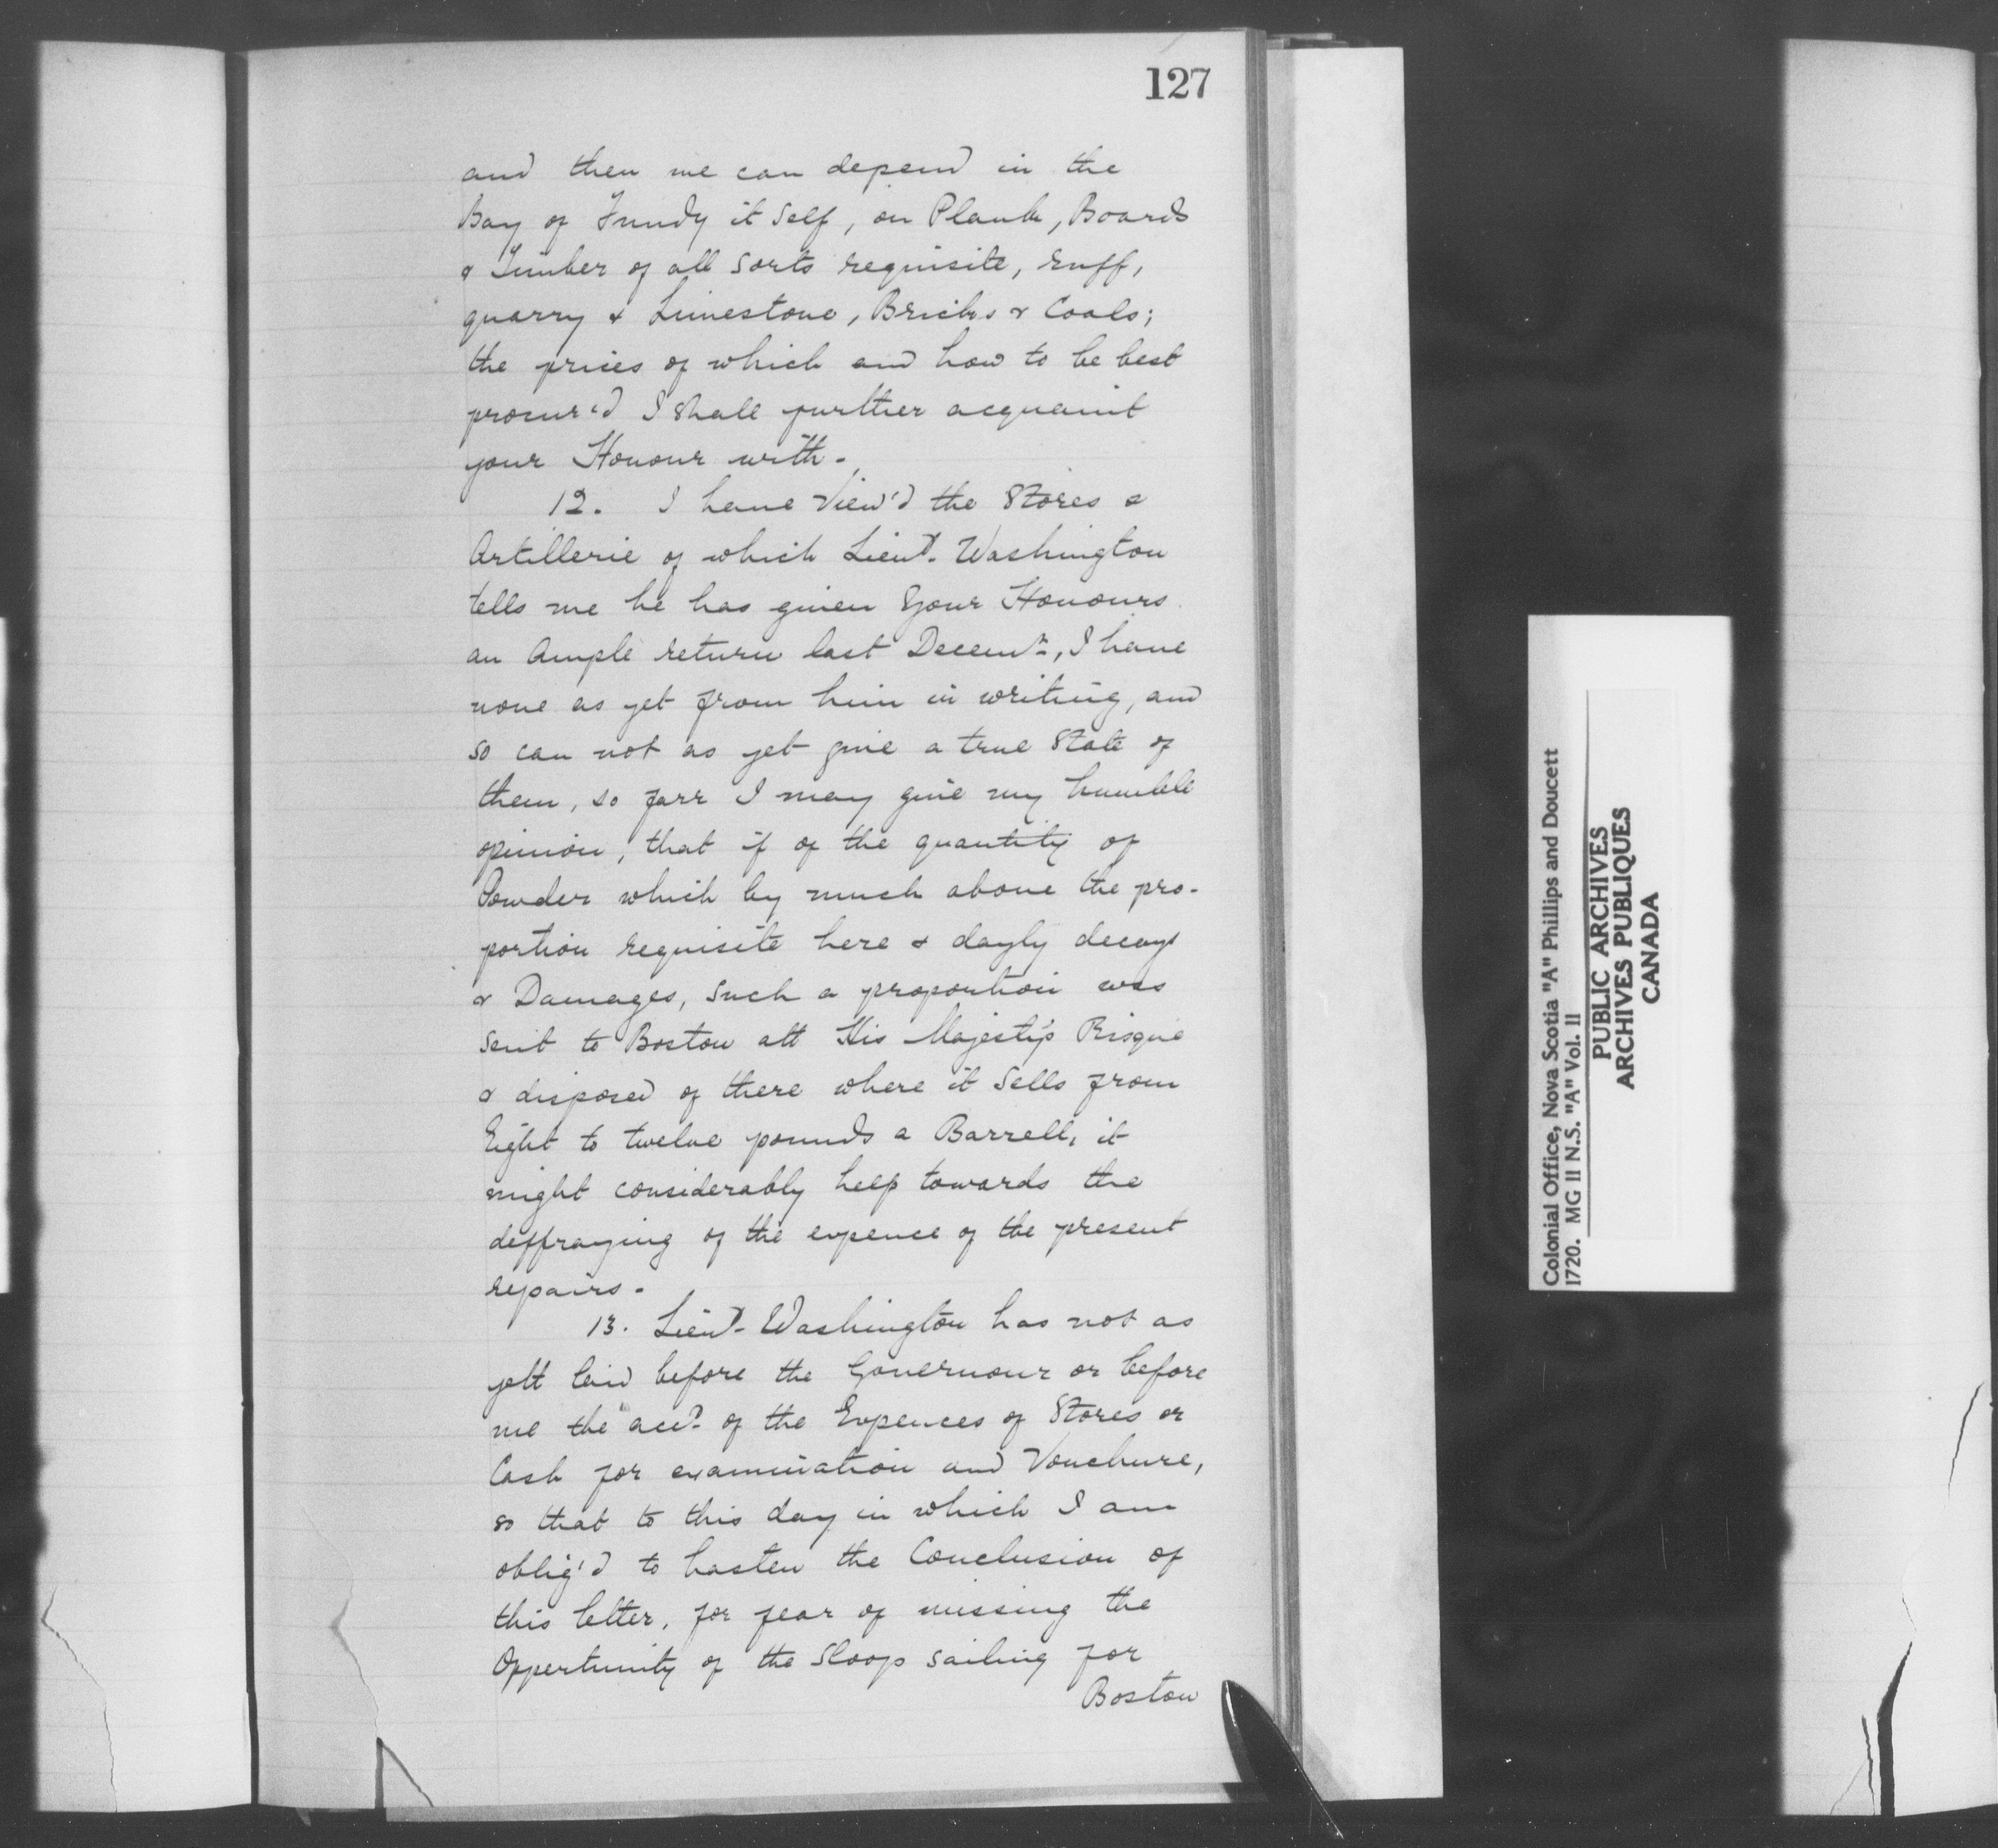 127
and then we can depend in the
Bay of Fundy it Self, on Plank, Boards
& Timber of all Sorts requisite, ruff,
quarry & Limestone, Bricks & Coals;
the prices of which and how to be best
procur'd I Shall further acquaint
your Honour with.
12. I have View'd the Stores &
Artillerie of which Lieut. Washington
tells me he has given Your Honours
an Ample return last Decemr., I have
none as yet from him in writing, and
so can not as yet give a true State of
them, so farr I may give my humble
opinion, that if of the quantity of
Powder which by much above the pro-
portion requisite here & dayly decays
& Damages, Such a proportion was
Sent to Boston att His Majesty's Risque
& disposed of there where it Sells from
Eight to twelve pounds a Barrell, it
might considerably help towards the
deffraying of the expence of the present
repairs.
13. Lieut. Washington has not as
yett laid before the Governour or before
me the acct. of the Expences of Stores or
Cash for examination and Vouchure,
so that to this day in which I am
oblig'd to hasten the Conclusion of
this letter, for fear of missing the
Oppertunity of the Sloop sailing for
Boston
Colonial Office, Nova Scotia "A" Phillips and Doucett
1720. MG II N.S. "A" Vol. II
PUBLIC ARCHIVES
ARCHIVES PUBLIQUES
CANADA